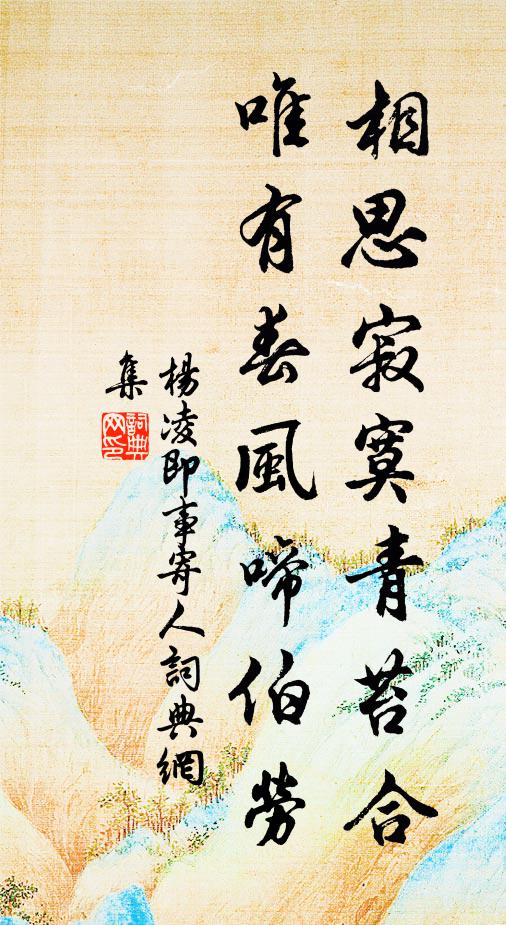 相思寂寞青苔合
唯有春風啼伯勞
楊凌即事寄人詞典網
集
詞典
网印